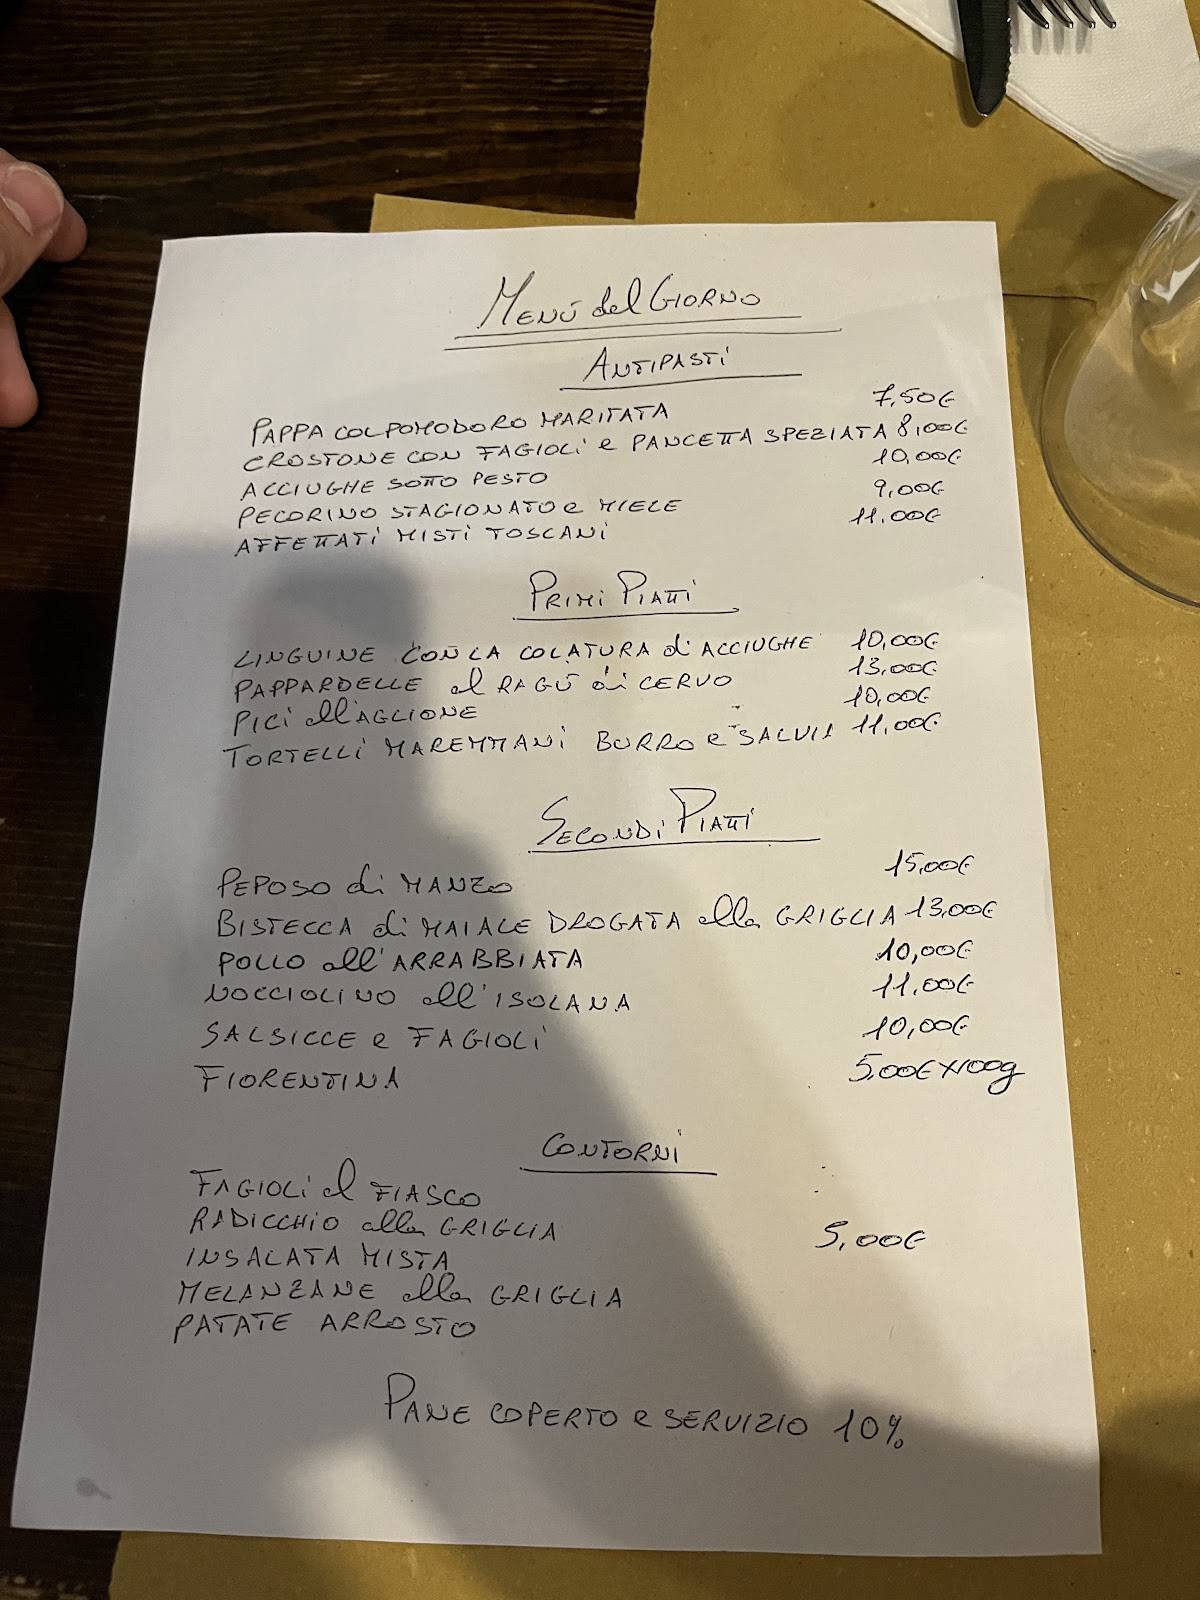 Menù del Giorno
Antipasti
Pappa col pomodoro maritata 7,50€
Crostone con fagioli e pancetta speziata 8,00€
Acciughe sotto pesto 10,00€
Pecorino stagionato e miele 9,00€
Affettati misti toscani 11,00€
Primi Piatti
Linguine con la colatura di acciughe 10,00€
Pappardelle al ragù di cervo 13,00€
Pici all'aglione 10,00€
Tortelli maremmani burro e salvia 11,00€
Secondi Piatti
Peposo di manzo 15,00€
Bistecca di maiale drogata alla griglia 13,00€
Pollo all'arrabbiata 10,00€
Nocciolino all'isolana 11,00€
Salsicce e fagioli 10,00€
Fiorentina 5,00€x100g
Contorni
Fagioli al fiasco
Radicchio alla griglia 5,00€
Insalata mista
Melanzane alla griglia
Patate arrosto
Pane coperto e servizio 10%